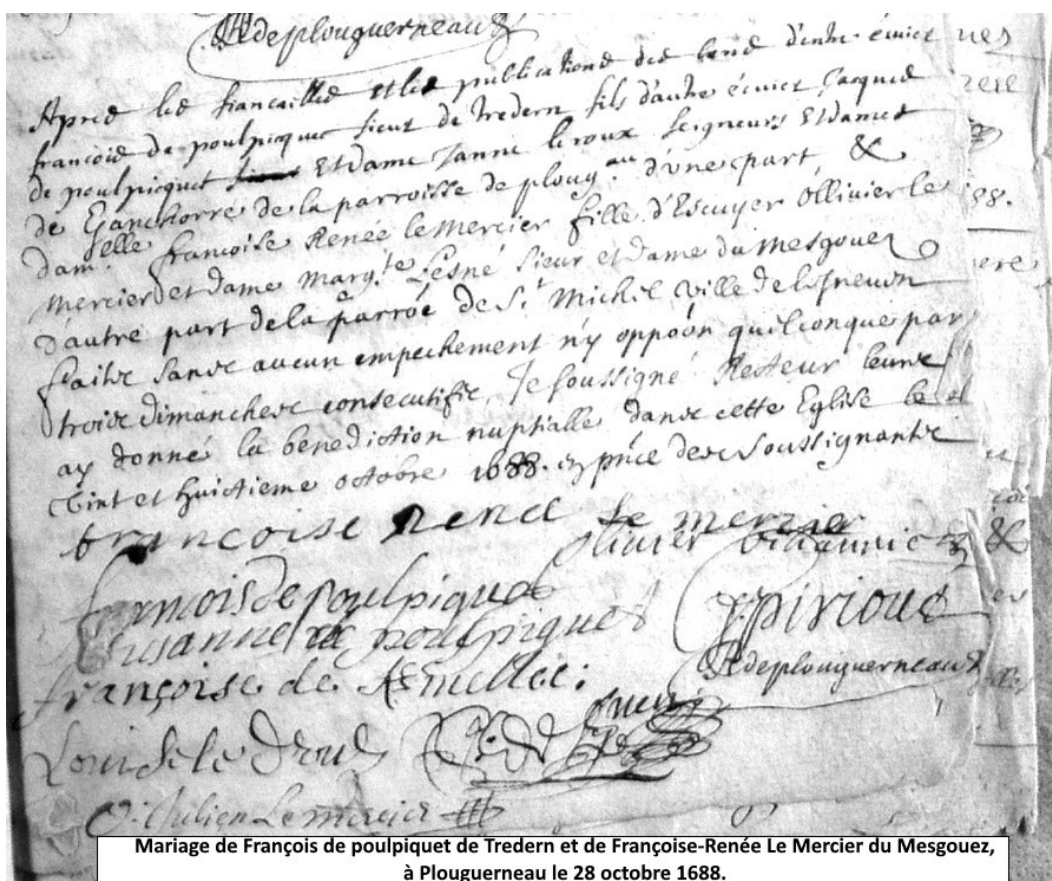 R de plouguerneau
Apres les fiancailles et les publications des bans d'entre écuier
francois de poulpiquet sieur de Tredern fils d'autre écuier Jacques
de poulpicquet Et Dame Janne le roux Seigneurs Et dames
de de la parroisse de ploug.au d'une part, &
dam.elle francoise Renée le mercier fille d'Escuyer Ollivier le
mercier et Dame Marg.te Lesné Sieur et Dame du Mesgouez
d'autre part de la parroe de S.t Michel ville de Lesneven
faitte sans aucun empechement n'y oppoon quelconque par
trois dimanches consecutifs, Je soussigné Recteur leurs
ay donné la benediction nuptialle dans cette Eglise le
vint et huictieme octobre 1688. en pñce des soussignants
francoise Renee le mercier
olivier
francois de Poulpiquet
Susanne de poulpiquet
pirioue
françoise de
R de plouguerneau
Louis le
Julien Le mercier
Mariage de François de poulpiquet de Tredern et de Françoise-Renée Le Mercier du Mesgouez,
à Plouguerneau le 28 octobre 1688.